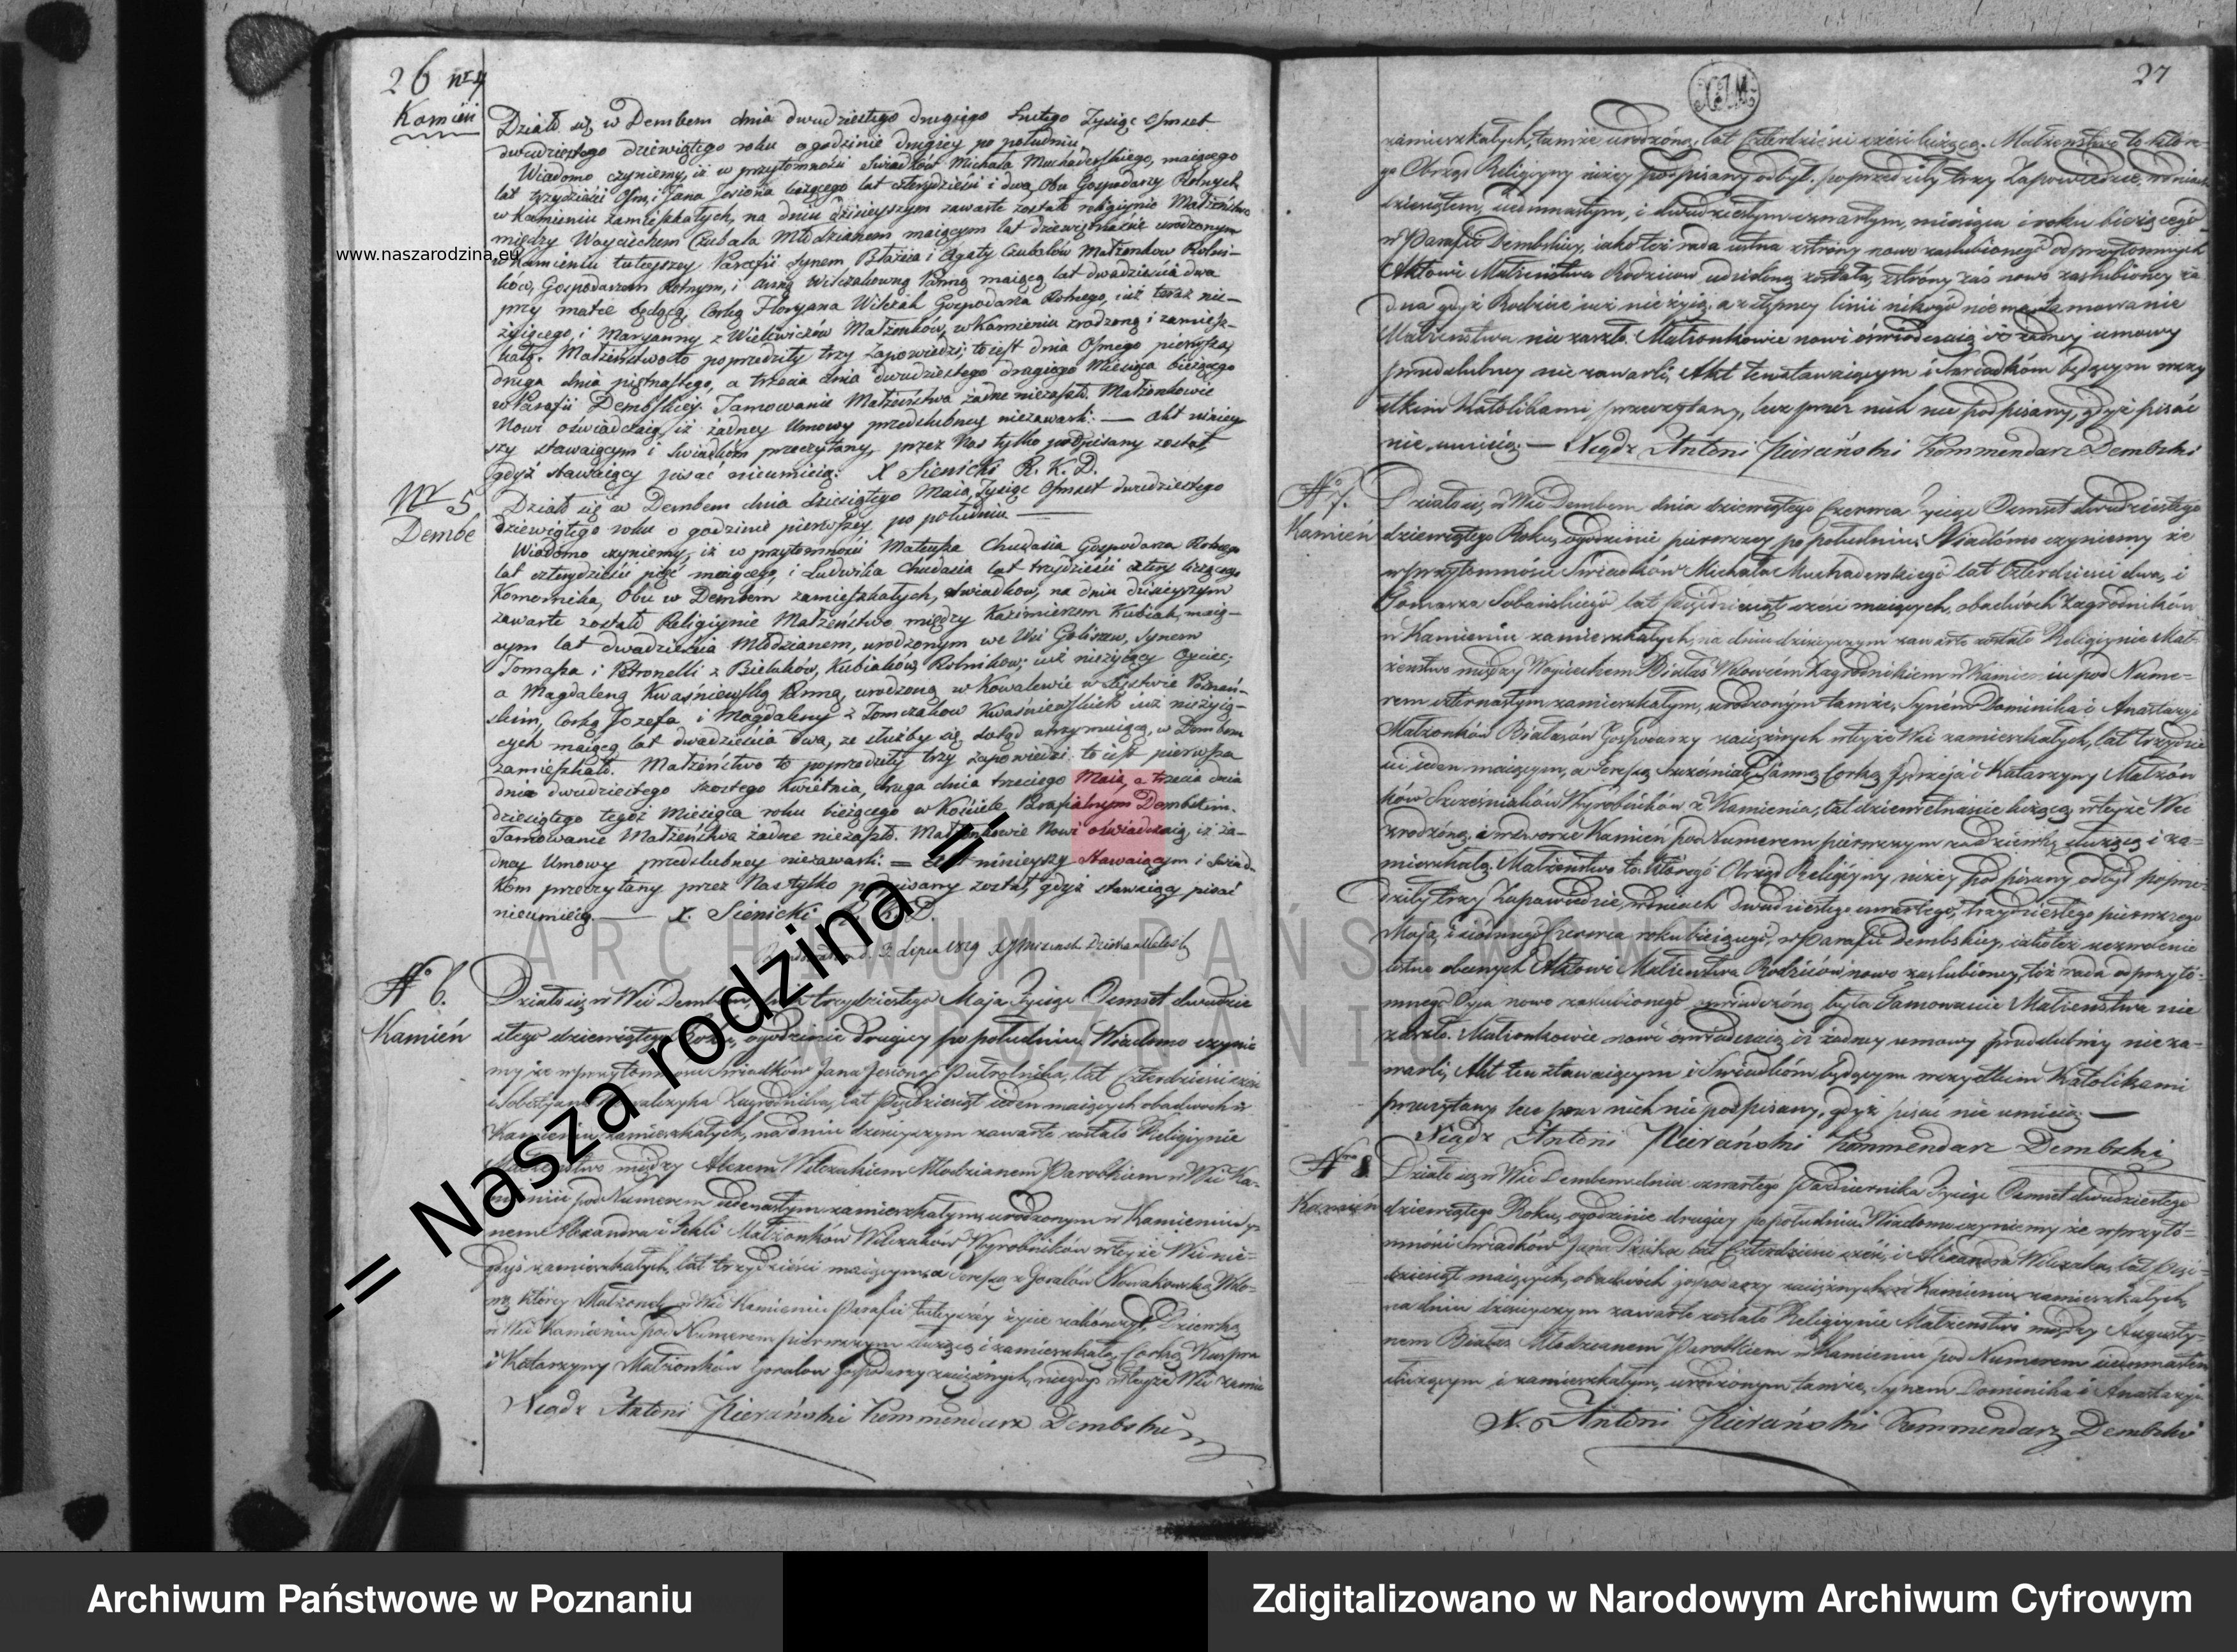 26 nr 4
Kamień
Działo się w Dembem dnia dwudziestego drugiego Lutego Tysiąc Ośmset
dwudziestego dziewiątego roku o godzinie drugiey po południu
Wiadomo czyniemy, iż w przytomności Swiadków Michała Muchaderskiego, maiącego
lat trzydzieści Ośm, i Jana Jesiona liczącego lat czterydzieści i dwa, Obu Gospodarzy Rolnych
w Kamieniu zamieszkałych, na dniu dzisieyszym zawarte zostało religiynie Małżeństwo
między Woyciechem Czubala Młodzianem maiącym lat dziewiętnaście urodzonym
w Kamieniu tuteyszey Parafii Synem Błażeia i Agaty Czubalów Małżonków Rolni-
ków, Gospodarzem Rolnym, i Anną Wilczakowną Panną maiącą lat dwadzieścia dwa
przy matce będącą, Corką Floryana Wilczak Gospodarza Rolnego, iuż teraz nie-
żyiącego, i Maryanny z Małżonków, w Kamieniu zrodzoną i zamiesz-
kałą. Małżeństwo to poprzedziły trzy Zapowiedzi; to iest dnia Osmego pierwsza,
druga dnia piętnastego, a trzecia dnia dwudziestego drugiego Miesiąca bieżącego
w Parafii Dembskiey. Tamowanie Małżeństwa żadne niezaszło. Małżonkowie
Nowi oświadczaią, iż żadney Umowy przedslubney niezawarli. — Akt niniey-
szy stawaiącym i Swiadkom przeczytany, przez Nas tylko podpisany został,
gdyż stawaiący pisać nieumieią. X Sienicki R. K. D.
Nr 5
Dembe
Działo się w Dembem dnia dziesiątego Maia Tysiąc Ośmset dwudziestego
dziewiątego roku o godzinie pierwszey po południu —
Wiadomo czyniemy, iż w przytomności Mateusza Chudasia Gospodarza Rolnego
lat czterydzieści pięć maiącego, i Ludwika Chudasia lat trzydzieści cztery liczącego
Komornika, Obu w Dembem zamieszkałych, swiadków, na dniu dzisieyszym
zawarte zostało Religiynie Małżeństwo między Kazimierzem Kubiak, maią-
cym lat dwadzieścia Młodzianem, urodzonym we Wsi Goliszew, Synem
Tomasza i Petronelli z Bielaków, Kubiaków, Rolników; iuż nieżyiący Oyciec;
a Magdaleną Kwaśniewską Panną, urodzoną w Kowalewie w Xięstwie Poznań-
skim, Corką Jozefa i Magdaleny z Tomczaków Kwaśniewskich iuż nieżyią-
cych maiącą lat dwadzieścia dwa, ze służby się dotąd utrzymuiącą, w Dembem
zamieszkałą. Małżeństwo to poprzedziły trzy zapowiedzi to iest pierwsza
dnia dwudziestego szostego Kwietnia, druga dnia trzeciego Maia, a trzecia dnia
dziesiątego tegoż Miesiąca roku bieżącego w Kościele Parafialnym Dembskim.
Tamowanie Małżeństwa żadne niezaszło. Małżonkowie Nowi oświadczaią iż ża-
dney Umowy przedslubney niezawarli. — Akt ninieyszy Stawaiącym i Swiad-
kom przeczytany przez Nas tylko podpisany został, gdyż stawaiący pisać
nieumieią. — X. Sienicki R. K. D.
d. 3. Lipca 1829
No 6.
Kamień
Działo się w Wsi Dembem dnia trzydziestego Maja Tysiąc Osmset dwudzie-
stego dziewiątego Roku, o godzinie Drugiey po południu. Wiadomo czynie
my, że w przytomności Swiadków Jana Jesionego Pułrolnika, lat Czterdzieści
i Sobestyana Kowalczyka Zagrodnika, lat Pięćdziesiąt ieden maiących obudwoch w
Kamieniu zamieszkałych, na dniu dzisieyszym zawarte zostało Religiynie
Małżeństwo między Alexem Wilczakiem Młodzianem Parobkiem w Wsi Ka-
mieniu pod Numerem iedenastym zamieszkałym, urodzonym w Kamieniu Sy-
nem Alexandra i Tekli Małżonków Wilczaków Wyrobników w teyże Wsi nie-
gdyś zamieszkałych, lat trzydzieści maiącym, a Teresą z Goralów Nowakowską Wdo-
wą, którey Małżonek w Wsi Kamieniu Parafii tuteyszey życie zakończył, Dziewką
w Wsi Kamieniu pod Numerem pierwszym służącą i zamieszkałą, Corką Kaspra
i Katarzyny Małżonków Goralow Gospodarzy zaciężnych, niegdyś w teyże Wsi zamie
Xiądz Antoni Pierański Kommendarz Dembski
27
zamieszkałych, tamże urodzoną, lat Czterdzieści sześć liczącą. Małżeństwo to które-
go Obrząd Religiyny niżey podpisany odbył, poprzedziły trzy Zapowiedzie, w dniach
dziesiątem, siedmnastym, i dwudziestym czwartym, miesiąca i roku bieżącego
w Parafii Dembskiey, iako też rada ustna z strony nowo zaslubionego od przytomnych
Aktowi Małżeństwa Rodziców udzielona została, z strony zaś nowo zaslubioney ża
dna gdyż Rodzice iuż nie żyią, a z wstępney linii nikogo nie ma. Tamowanie
Małżeństwa nie zaszło. Małżonkowie nowi oświadczaią iż żadney umowy
przedslubney nie zawarli, Akt ten stawaiącym i Swiadkom będącym wszy
stkim Katolikami przeczytany, lecz przez nich nie podpisany, gdyż pisać
nie umieią. — Xiądz Antoni Pierański Kommendarz Dembski
No 7.
Kamień
Działo się w Wsi Dembem dnia dziewiątego Czerwca Tysiąc Osmset dwudziestego
dziewiątego Roku, o godzinie pierwszey po południu. Wiadomo czyniemy że
w przytomności Swiadków Michała Muchaderskiego lat Czterdzieści dwa, i
Tomasza Sobańskiego lat pięćdziesiąt sześć maiących, obudwóch Zagrodników
w Kamieniu zamieszkałych, na dniu dzisieyszym zawarte zostało Religiynie Mał-
żeństwo między Woyciechem Białas Wdowcem Zagrodnikiem w Kamieniu pod Nume-
rem czternastym zamieszkałym, urodzonym tamże, Synem Dominika i Anastazyi
Małżonków Białasów Gospodarzy zaciężnych w teyże Wsi zamieszkałych, lat trzydzie
ści ieden maiącym, a Teresą Szcześniak Panną Corką Jędrzeja i Katarzyny Małżon
ków Szcześniaków Wyrobników z Kamienia, lat dziewiętnaście liczącą w teyże Wsi
zrodzoną, i w dworze Kamień pod Numerem pierwszym za dziewkę służącą i za-
mieszkałą. Małżeństwo to, którego Obrząd Religiyny niżey podpisany odbył poprze-
dziły trzy Zapowiedzie, w dniach dwudziestego czwartego, trzydziestego pierwszego
Maja, i siodmego Czerwca roku bieżącego, w Parafii Dembskiey, iako też zezwolenie
ustne obecnych Aktowi Małżeństwa Rodziców nowo zaslubioney, też rada od przyto-
mnego Oyca nowo zaslubionego oświadczona była. Tamowanie Małżeństwa nie
zaszło. Małżonkowie nowi oświadczaią iż żadney umowy przedslubney nie za-
warli, Akt ten stawaiącym i Swiadkom, będącym wszystkim Katolikami
przeczytany lecz przez nich nie podpisany, gdyż pisać nie umieią. —
Xiądz Antoni Pierański Kommendarz Dembski
Nro 8
Kamień
Działo się w Wsi Dembem dnia czwartego Pazdziernika Tysiąc Osmset dwudziestego
dziewiątego Roku, o godzinie drugiey po południu. Wiadomo czyniemy że w przyto-
mności Swiadków Jana lat Czterdzieści sześć, i Alexandra Wilczaka, lat Pięć-
dziesiąt maiących, obudwóch gospodarzy zaciężnych w Kamieniu zamieszkałych,
na dniu dzisieyszym zawarte zostało Religiynie Małżeństwo między Augusty-
nem Białas Młodzianem Parobkiem w Kamieniu pod Numerem siedmnastem
służącym i zamieszkałym, urodzonym tamże, Synem Dominika i Anastazyi
X. Antoni Pierański Kommendarz Dembski
www.naszarodzina.eu
-= Nasza rodzina =-
ARCHIWUM PAŃSTWOWE
W POZNANIU
Archiwum Państwowe w Poznaniu
Zdigitalizowano w Narodowym Archiwum Cyfrowym